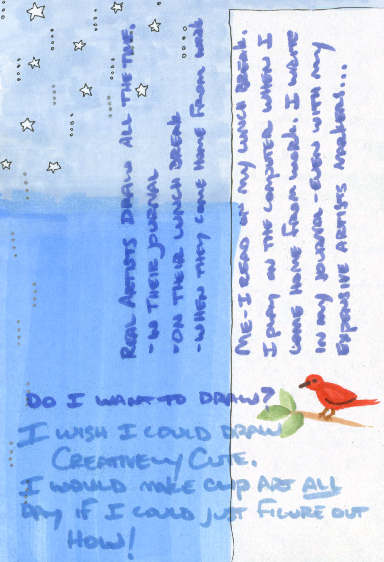 REAL ARTISTS DRAW ALL THE TIME.
- IN THEIR JOURNAL
- ON THEIR LUNCH BREAK
- WHEN THEY COME HOME FROM WORK
ME - I READ ON MY LUNCH BREAK.
I PLAY ON THE COMPUTER WHEN I
COME HOME FROM WORK. I WRITE
IN MY JOURNAL - EVEN WITH MY
EXPENSIVE ARTISTS MARKERS...
DO I WANT TO DRAW?
I WISH I COULD DRAW
CREATIVELY CUTE.
I WOULD MAKE CLIP ART ALL
DAY IF I COULD JUST FIGURE OUT
HOW!